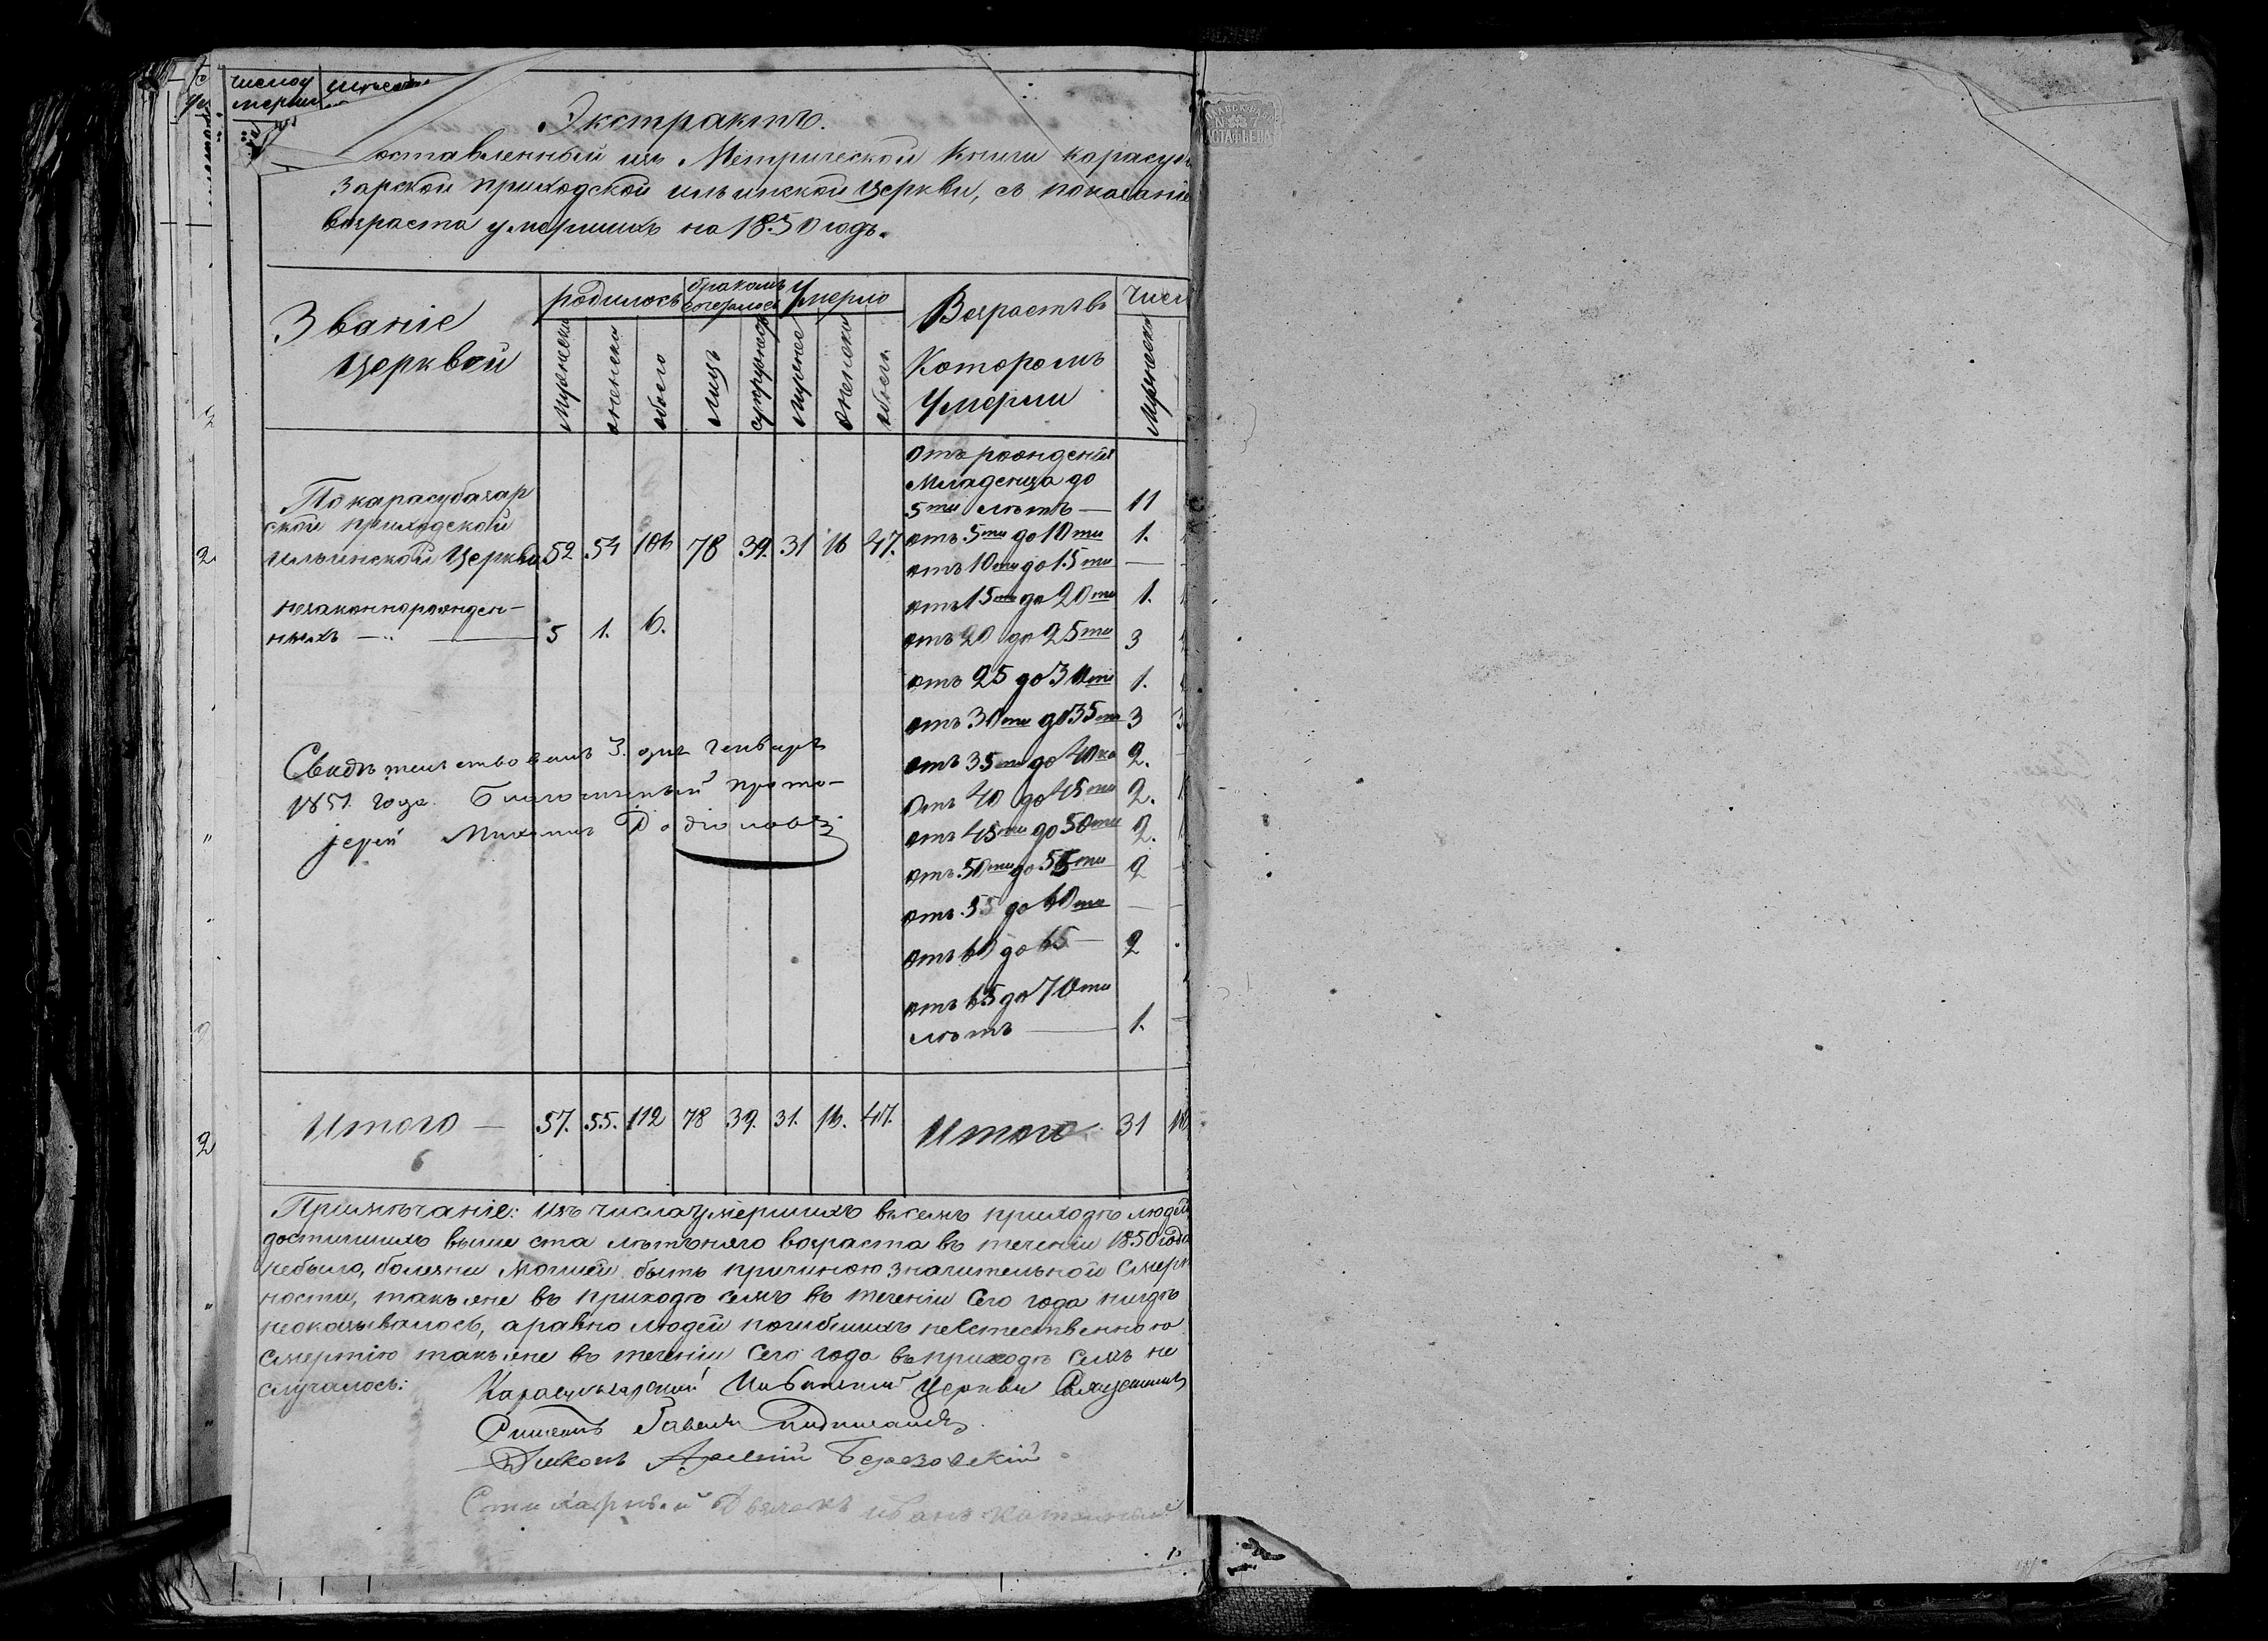 Экстрактъ.
оставленный изъ Метрической Книги карасуба
зарской приходской ильинской Церкви, съ показаніе
возраста умершихъ на 1850 годъ.
Званіе
Церквей
родилось
бракомъ
сочеталось
Умерло
Возрастъ въ
Которомъ
Умерли
Числ
Мужеска
женска
обоего
Лицъ
супружествъ
Мужеска
женска
обоего
Мужеска
отъ рожденія
Младенца до
5ти лѣтъ — 11
По карасубазар
ской приходской
ильинской Церкви 52 54 106 78 39. 31 16 47.
отъ 5ти до 10ти 1.
отъ 10ти до 15ти —
незаконнорожден-
ныхъ — 5 1. 6.
отъ 15ти до 20ти 1.
отъ 20 до 25ти 3
отъ 25 до 30ти 1.
отъ 30ти до 35ти 3 3
отъ 35ти до 40ка 2.
отъ 40 до 45ти 2.
отъ 45ти до 50ти 2.
отъ 50ти до 55ти 2
отъ 55 до 60ти —
отъ 60 до 65 — 2
отъ 65 до 70ти
лѣтъ — 1.
Свидѣтельствовалъ 3. дня Генваря
1851. года. Благочинный прото-
іерей Михаилъ Родіоновъ
Итого — 57. 55. 112 78 39. 31. 16. 47. Итого 31 16
6
Примѣчаніе: Изъ числа умершихъ въ семъ приходѣ людей
достигшихъ выше ста лѣтняго возраста въ теченіи 1850 года
небыло, болезни Могшей быть причиною значительной Смерт
ности, также въ приходѣ семъ въ теченіи Сего года нигдѣ
неоказывалось, а равно людей погибшихъ неестественною
смертію также въ теченіи Сего года въ приходѣ семъ не
случалось:
Карасубазарской Церкви Священникъ
Діаконъ Березовскій
Стихарный Дьячекъ иванъ